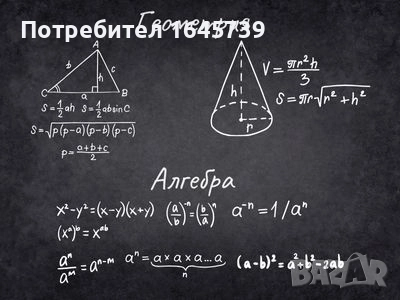 Потребител 1645739
Геометрия
A
b
c
h
C
a
B
S=½ah S=½absinC
S=√(p(p-a)(p-b)(p-c))
p=(a+b+c)/2
h
r
V=πr²h/3
S=πr√(r²+h²)
Алгебра
x²-y²=(x-y)(x+y) (a/b)⁻ⁿ=(b/a)ⁿ a⁻ⁿ=1/aⁿ
(xᵃ)ᵇ=xᵃᵇ
aⁿ/aᵐ=aⁿ⁻ᵐ aⁿ=a×a×a...a (a-b)²=a²+b²-2ab
n
BAZAR